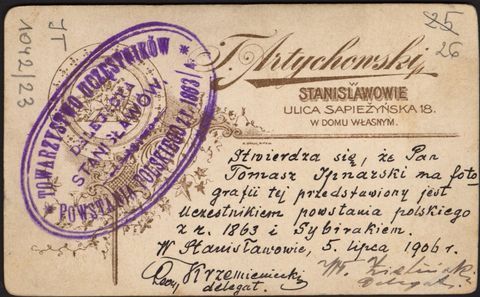 JT
1042/23
25
26
T. Artychowski
W
STANISŁAWOWIE
ULICA SAPIEŻYŃSKA 18.
W DOMU WŁASNYM.
* TOWARZYSTWO UCZESTNIKÓW *
POWSTANIA POLSKIEGO Z R. 1863/4
STANISŁAWÓW.
Stwierdza się, że Pan
Tomasz Spinarski na foto
grafii tej przedstawiony jest
uczestnikiem powstania polskiego
z r. 1863 i Sybirakiem.
W Stanisławowie, 5. lipca 1906 r.
Krzemieniecki
delegat.
delegat